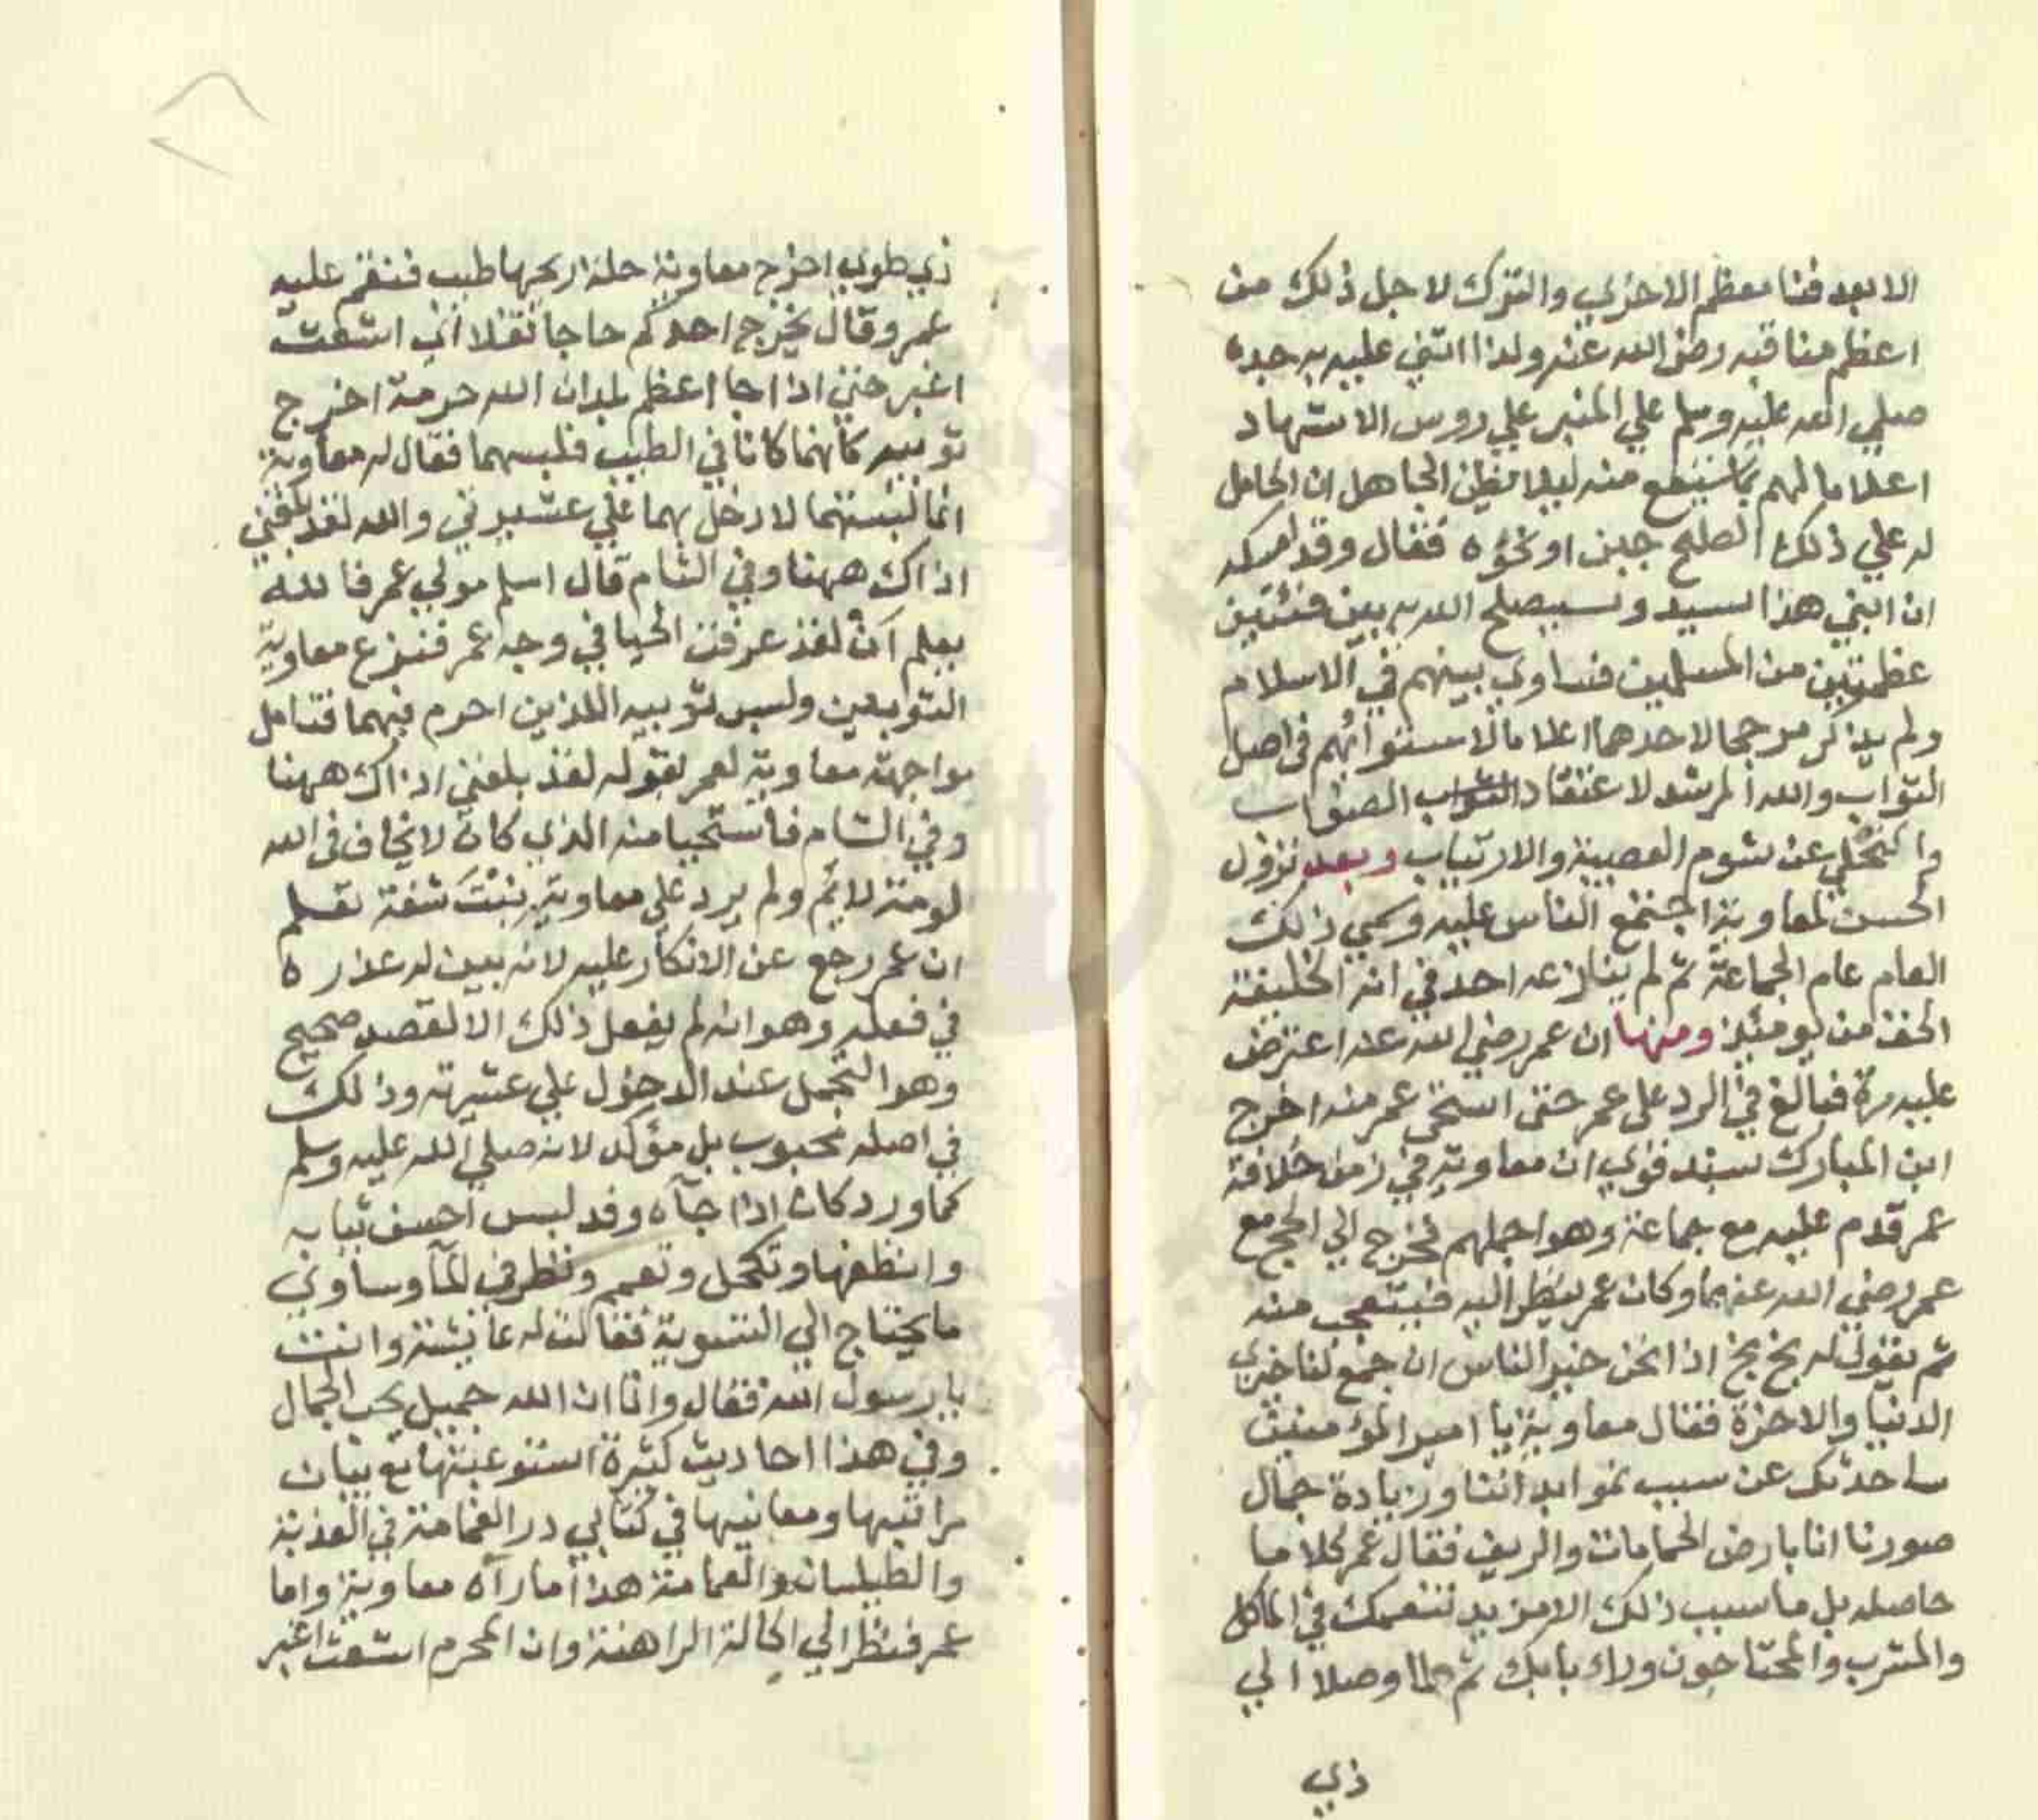 الا بعد فنا معظم الاخري والترك لاجل ذلك من
اعظم مناقبه رضى الله عنه ولذا اثني عليه به جده
صلي الله عليه وسلم علي المنبر علي روس الاشهاد
اعلاما لهم بما سيقع منه ليلا يظن الجاهل ان الحامل
له علي ذلك الصلح جبن او نحوه فقال وقد امسكه
ان ابني هذا سيد وسيصلح الله به بين فئتين
عظمتين من المسلمين فساوي بينهم في الاسلام
ولم يذكر مرجحا لاحدهما اعلاما لاستوائهم في اصل
الثواب والله المرشد لاعتقاد الصواب
والتخلي عن شوم العصبية والارتياب وبعد نزول
الحسن لمعاوية اجتمع الناس عليه وسمي ذلك
العام عام الجماعة ثم لم ينازعه احد في انه الخليفة
الحق من يومئذ ومنها ان عمر رضي الله عنه اعترض
عليه مرة فبالغ في الرد علي عمر حتى استحى عمر منه اخرج
ابن المبارك بسند قوي ان معاوية في زمن خلافة
عمر قدم عليه مع جماعة وهو اجملهم فخرج الي الحج مع
عمر رضي الله عنهما وكان عمر ينظر اليه فيتعجب منه
ثم يقول له بخ بخ اذا نحن خير الناس ان جمع لنا خيري
الدنيا والاخرة فقال معاوية يا امير المؤمنين
ساحدثك عن سبب نمو ابداننا وزيادة جمال
صورنا انا بارض الحمامات والريف فقال عمر كلاما
حاصله بل ما سبب ذلك الا مزيد تنعمك في الماكل
والمشرب والمحتاجون وراء بابك ثم لما وصلا الي
ذي
ذي طوي اخرج معاوية حلة ريحها طيب فنقم عليه
عمر وقال يخرج احدكم حاجا تفلا اي اشعث
اغبر حتى اذا جا اعظم بلدان الله حرمة اخرج
ثوبيه كانهما كانا في الطيب فلبسهما فقال له معاوية
انما لبستهما لادخل بهما علي عشيرتي والله لقد بلغني
اذاك ههنا وفي الشام قال اسلم مولي عمر فالله
يعلم ان لقد عرفت الحيا في وجه عمر فنزع معاوية
الثوبين ولبس ثوبيه اللذين احرم فيهما فتامل
مواجهة معاوية لعمر بقوله لقد بلغني اذاك ههنا
وفي الشام فاستحيا منه الذي كان لا يخاف في الله
لومة لائم ولم يرد علي معاوية ببنت شفة تعلم
ان عمر رجع عن الانكار عليه لانه بين له عذره
في فعله وهو انه لم يفعل ذلك الا لقصد صحيح
وهو التجمل عند الدخول علي عشيرته وذلك
في اصله محبوب بل مؤكد لانه صلي الله عليه وسلم
كما ورد كان اذا جآه وفد لبس احسن ثيابه
وانظفها وتكحل وتعمم ونظر في المآ وساوي
ما يحتاج الي التسوية فقالت له عايشة وانت
يا رسول الله فقال وانا ان الله جميل يحب الجمال
وفي هذا احاديث كثيرة استوعبتها مع بيان
مراتبها ومعانيها في كتابي در الغمامة في العذبة
والطيلسان والعمامة هذا ما رآه معاوية واما
عمر فنظر الي الحالة الراهنة وان المحرم اشعث اغبر